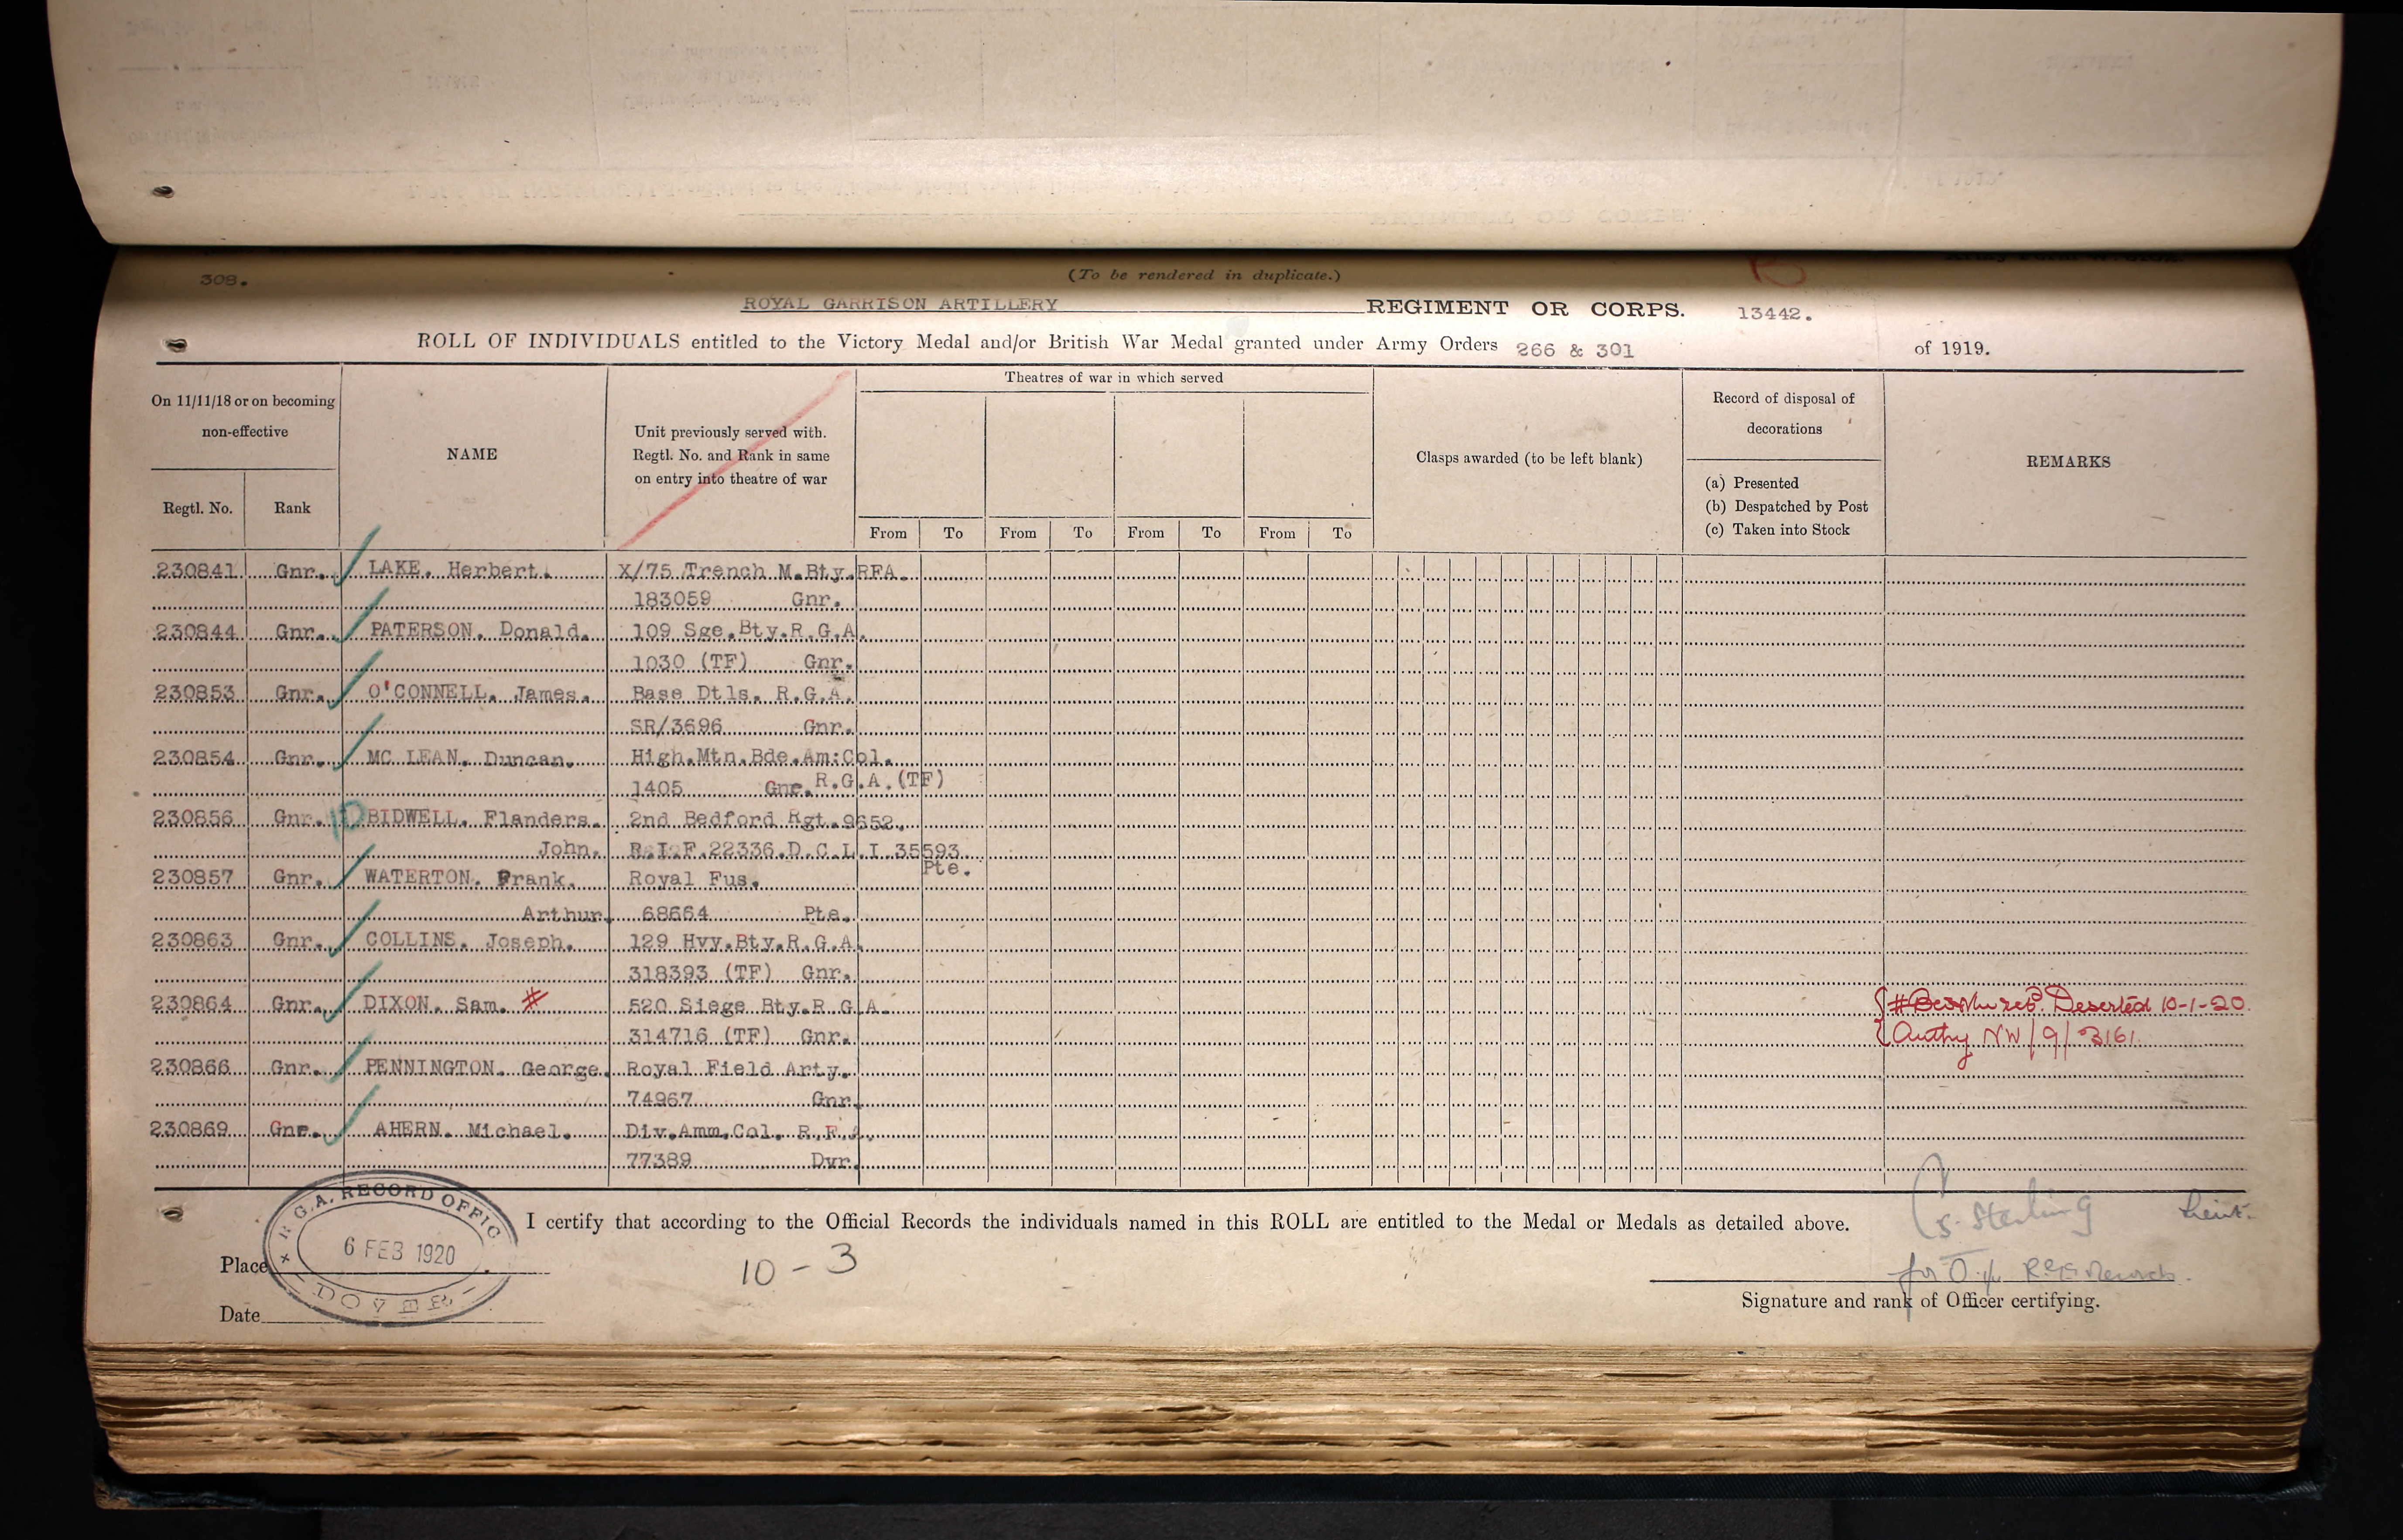 308.
(To be rendered in duplicate.)
ROYAL GARRISON ARTILLERY REGIMENT OR CORPS. 13442.
ROLL OF INDIVIDUALS entitled to the Victory Medal and/or British War Medal granted under Army Orders 266 & 301 of 1919.
On 11/11/18 or on becoming
non-effective
Regtl. No.
Rank
NAME
Unit previously served with.
Regtl. No. and Rank in same
on entry into theatre of war
Theatres of war in which served
From To From To From To From To
Clasps awarded (to be left blank)
Record of disposal of
decorations
(a) Presented
(b) Despatched by Post
(c) Taken into Stock
REMARKS
230841 Gnr. LAKE. Herbert. X/75 Trench M.Bty.RFA.
183059 Gnr.
230844 Gnr. PATERSON. Donald. 109 Sge.Bty.R.G.A.
1030 (TF) Gnr.
230853 Gnr. O'CONNELL. James. Base Dtls. R.G.A.
SR/3696 Gnr.
230854 Gnr. MC LEAN. Duncan. High.Mtn.Bde.Am:Col.
1405 Gnr. R.G.A.(TF)
230856 Gnr. BIDWELL. Flanders. 2nd Bedford Rgt.9652.
John. R.I.F.22336.D.C.L.I.35593
Pte.
230857 Gnr. WATERTON. Frank. Royal Fus.
Arthur. 68664 Pte.
230863 Gnr. COLLINS. Joseph. 129 Hvy.Bty.R.G.A.
318393 (TF) Gnr.
230864 Gnr. DIXON. Sam. # 520 Siege Bty.R.G.A. # Deserted 10-1-20.
314716 (TF) Gnr. Authy NW/9/3161.
230866 Gnr. PENNINGTON. George. Royal Field Arty.
74967 Gnr.
230869 Gnr. AHERN. Michael. Div.Amm.Col. R.F.A.
77389 Dvr.
I certify that according to the Official Records the individuals named in this ROLL are entitled to the Medal or Medals as detailed above.
Sterling Lieut.
R.G.A. RECORD OFFIC
6 FEB 1920
DOVER
Place
10 - 3
for O i/c RGA Records.
Signature and rank of Officer certifying.
Date